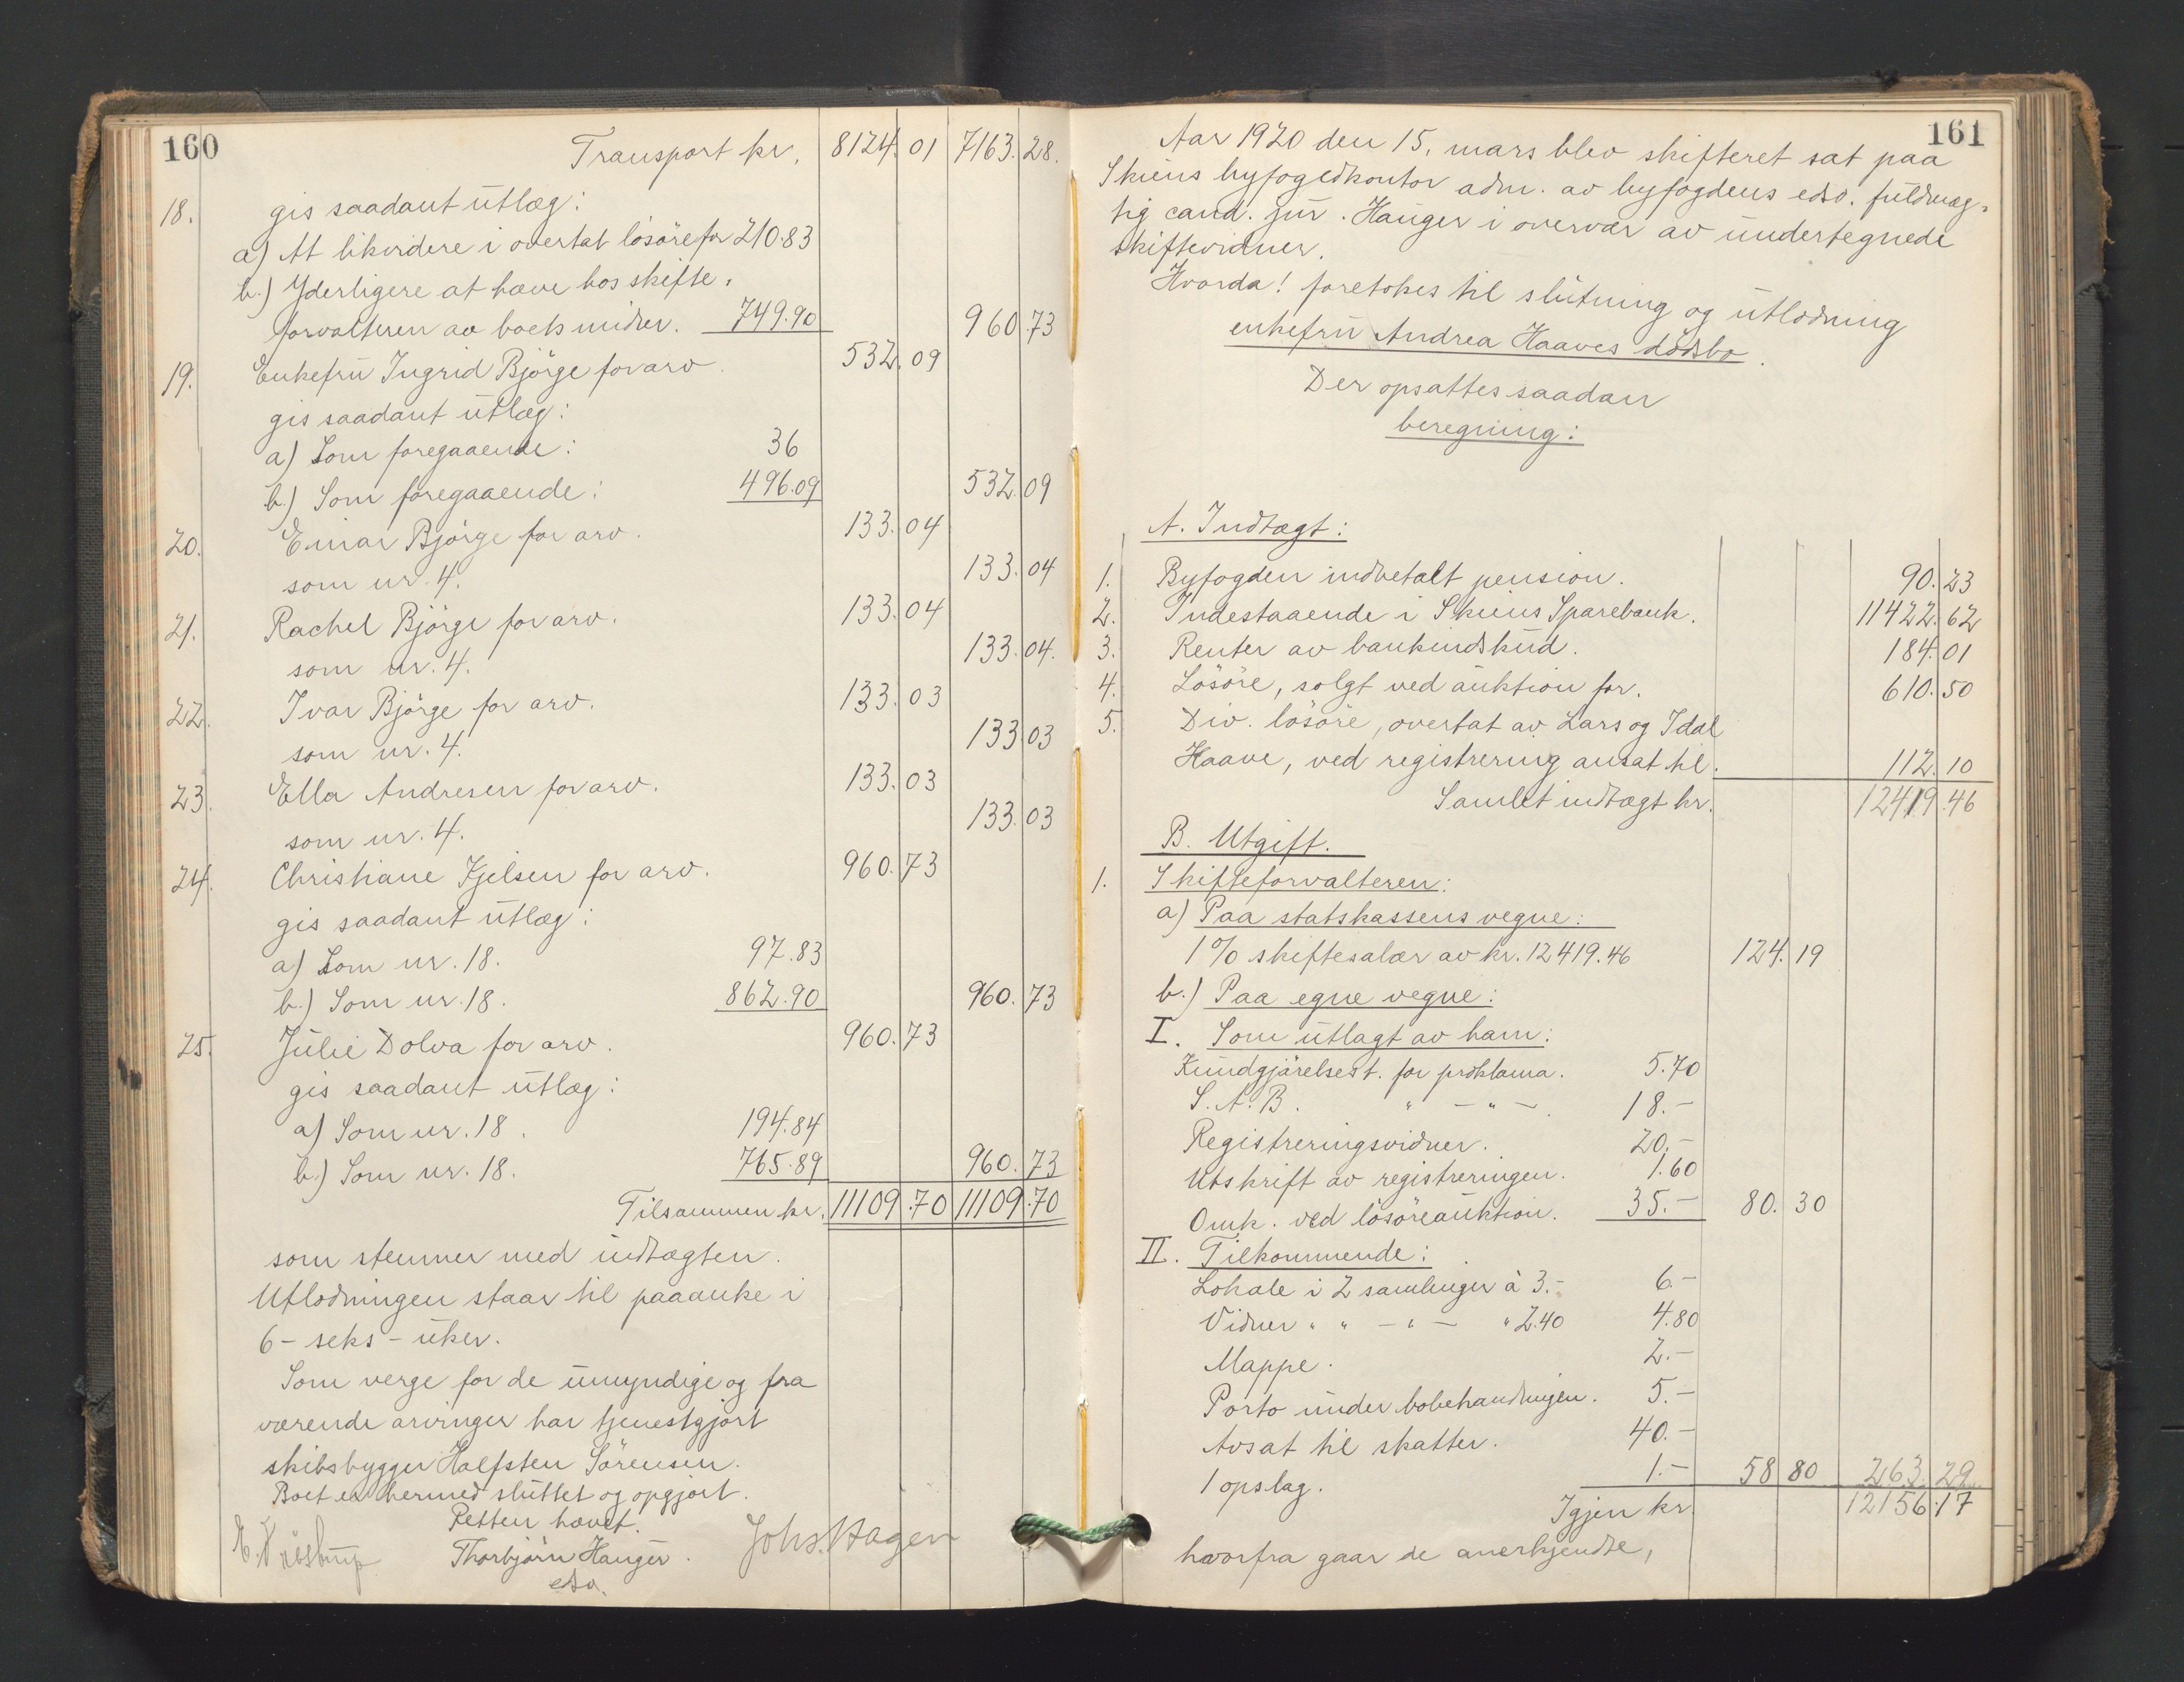 160
Transport kr. 8124.01 7163.28.
18. gis saadant utlæg:
a) At likvidere i overtat lösöre for 210.83
b.) Yderligere at hæve hos skifte-
forvalteren av boets midler. 749.90 960.73
19. Enkefru Ingrid Björge for arv. 532.09
gis saadant utlæg:
a) Som foregaaende: 36
b.) Som foregaaende: 496.09 532.09
20. Einar Björge for arv. 133.04
som nr. 4. 133.04
21. Rachel Björge for arv. 133.04
som nr. 4. 133.04.
22. Ivar Björge for arv. 133.03
som nr. 4. 133.03
23. Ella Andresen for arv. 133.03
som nr. 4. 133.03
24. Christiane Kjelsen for arv. 960.73
gis saadant utlæg:
a) Som nr. 18. 97.83
b.) Som nr. 18. 862.90 960.73
25. Julie Dolva for arv. 960.73
gis saadant utlæg:
a) Som nr. 18. 194.84
b.) Som nr. 18. 765.89 960.73
Tilsammen kr. 11109.70 11109.70
som stemmer med indtægten.
Utlodningen staar til paaanke i
6 - seks - uker.
Som verge for de umyndige og fra
værende arvinger har tjenestgjort
skibsbygger Halfsten Sörensen.
Boet er hermed sluttet og opgjort.
Retten hævet.
Thorbjørn Hauger. Johs. Hagen
edsv.
161
Aar 1920 den 15. mars blev skifteret sat paa
Skiens byfogedkontor adm. av byfogdens edsv. fuldmæg-
tig cand. jur. Hauger i overvær av undertegnede
skiftevidner.
Hvorda! foretokes til slutning og utlodning
enkefru Andrea Haaves dödsbo.
Der opsattes saadan
beregning:
A. Indtægt:
1. Byfogden indbetalt pension. 90.23
2. Indestaaende i Skiens Sparebank. 11422.62
3. Renter av bankindskud. 184.01
4. Lösöre, solgt ved auktion for. 610.50
5. Div. lösöre, overtat av Lars og Idal
Haave, ved registrering ansat til. 112.10
Samlet indtægt kr. 12419.46
B. Utgift.
1. Skifteforvalteren:
a) Paa statskassens vegne:
1% skiftesalær av kr. 12419.46 124.19
b.) Paa egne vegne:
I. Som utlagt av ham:
Kundgjörelsest. for proklama. 5.70
S. A. B. " - " - 18.-
Registreringsvidner. 20.-
Utskrift av registreringen. 1.60
Omk. ved lösöreauktion. 35.- 80.30
II. Tilkommende:
Lokale i 2 samlinger à 3.- 6.-
Vidner " " - " - " 2.40 4.80
Mappe. 2.-
Porto under bobehandlingen. 5.-
Avsat til skatter. 40.-
1 opslag. 1.- 58.80 263.29
Igjen kr. 12156.17
hvorfra gaar de anerkjendte,